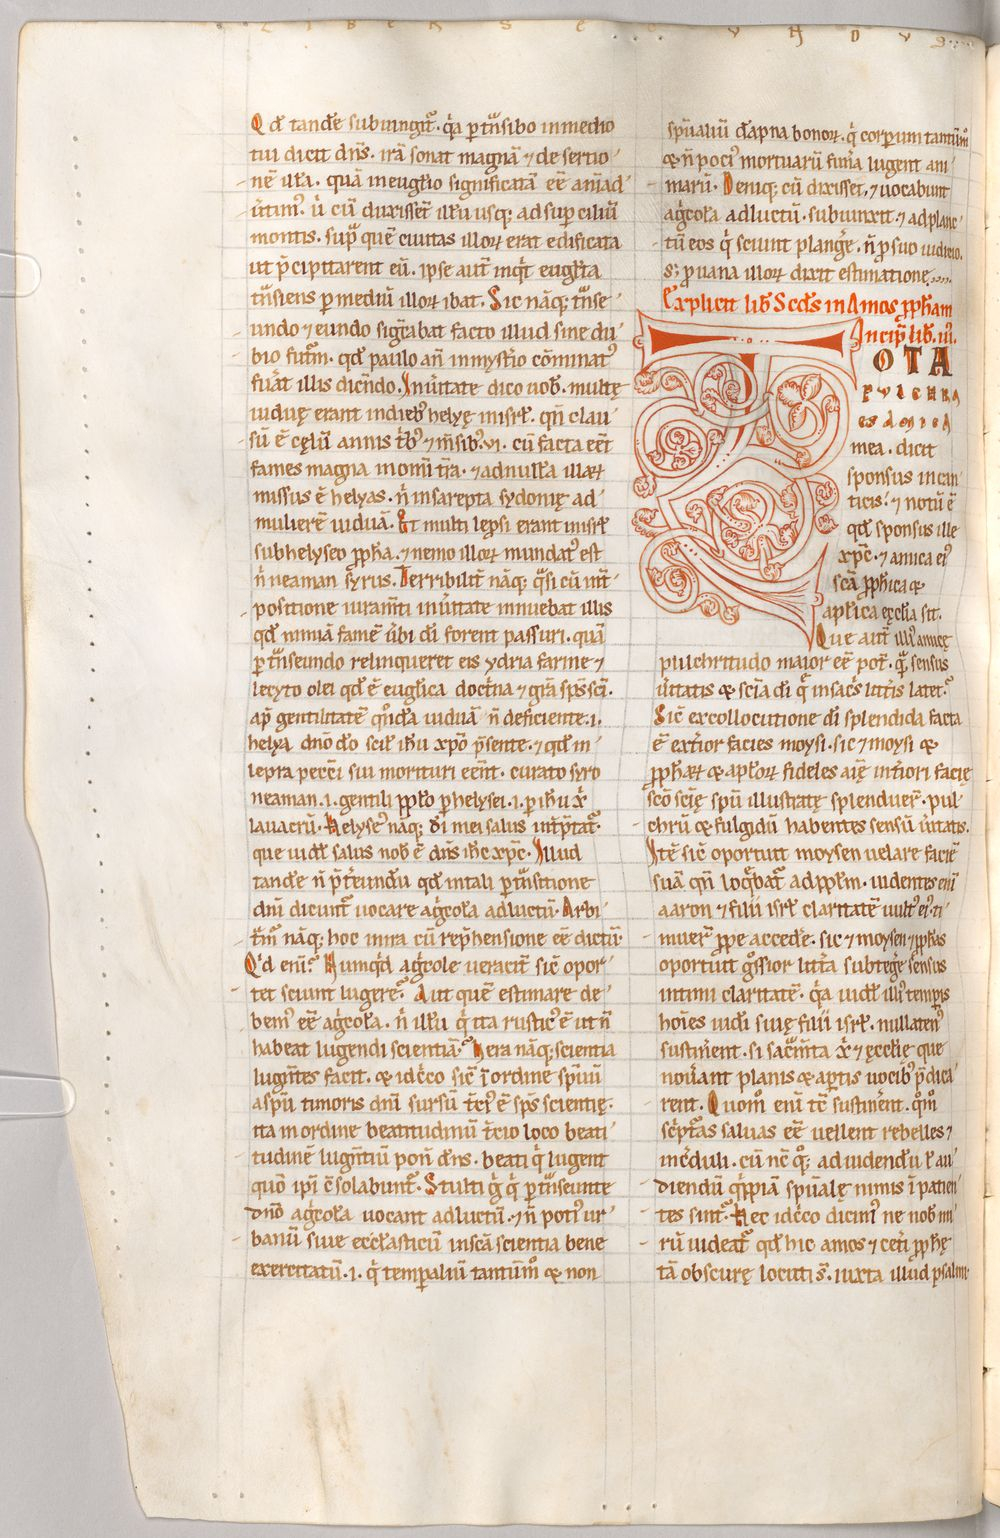 LIBER SECVNDVS
Qd' tand̄e subiungit᷑. q̇a ꝑt̄nsibo inmedio
tui dicit dn̄s. irā sonat magnā ⁊ desertio
nē illā. quā ineug̅lio significatā eē
cū duxissēt illū usq; adsuꝑciliū
montis. suꝑ quē ciuitas illoꝝ erat edificata
ut p̄cipitarent eū. ipse aut̄ inqͥt eug̅lista
t̄nsiens ꝑ mediū illoꝝ ibat. Sic nāq; t̄nse
undo ⁊ eundo sig̅cabat facto illud sine du
bio futr̄m. qd' paulo an̄ inmyst̄io cōminatꝰ
fuāt illis dicn̄do. In ūitate dico uob̄. multę
uiduę erant indiebꝫ helyę inisrl̄. qn̄ clau
sū ē cęlū annis t̄bꝫ ⁊ m̄sibꝫ .vi. cū facta eēt
fames magna inom̄i t̄ra. ⁊ adnullā illaꝝ
missus ē helyas. n̄ insarepta sydonię ad
mulierē uiduā. Et multi lep̄si erant inisrl̄
subhelyseo ꝓph̄a. ⁊ nemo illoꝝ mundatꝰ est
n̄ neaman syrus. Terribilit̄ nāq; q̄si cū int̄
positione iuram̄ti inūitate innuebat illis
qd' nimiā famē ūbi dī forent passuri. quā
ꝑt̄nseundo relinqueret eis ydria farine ⁊
lecyto olei qd' ē eug̅lica doct̄na ⁊ grā sp̄s sc̄i.
ap̄ gentilitatē uiduā n̄ deficiente .i.
helya dn̄o dō scil̄ ih̄u xp̄o p̄sente. ⁊ qd' in
lepra pecc̄i sui morituri eēnt. curato syro
neaman .i. gentili pp̄lo ꝑ helysei .i. ꝑ ih̄u xp̄i
lauacrū. Helyseꝰ nāq; dī mei salus int̄p̄tat᷑.
que uidel̄ salus nob̄ ē dn̄s ih̄c xp̄c. Illud
tand̄e n̄ p̄t̄eundū qd' intali ꝑt̄nsitione
dn̄i dicunt᷑ uocare ag̅cola adluctū. Arbi
t̄m̄ nāq; hoc inira cū rep̄hensione eē dictū.
Qid eni᷑? Numqd' ag̅cole ueracit̄ sic̄ opor
tet sciunt lugere? Aut quē estimare de
bemꝰ eē ag̅cola. n̄ illū qͥ ita rusticꝰ ē ut n̄
habeat lugendi scientiā? Vera nāq; scientia
lugn̄tes facit. & idc̄co sic̄ ī ordine sp̄uū
aspū timoris dn̄i sursū t̄ciꝰ ē sp̄s scientię.
ita in ordine beatitudinū t̄cio loco beati
tudinē lugn̄tiū poni dn̄s. beati qͥ lugent
quō ip̄i c̄solabunt᷑. Stulti ḡ qͥ ꝑt̄nseunte
dn̄o ag̅cola uocant adluctū. ⁊ n̄ potiꝰ ur
banū siue eccl̄asticū inscā scientia bene
exercitatū .i. qͥ temꝑaliū tantūmͦ & non
sp̄ualiū dāpna bonoꝝ. qͥ corꝑum tantūmͦ
& n̄ pociꝰ mortuarū fun̄ia lugent ani
marū. Deniq; cū dixisset, ⁊ uocabunt
ag̅cola adluctū. subiunxit. ⁊ adplanc
tū eos qͥ sciunt plang̅e. n̄ ꝓ suo iudicio.
sꝫ ꝓ uana illoꝝ dixit estimatione.
Explicit lib̄ Scd̄s in Amos ꝓph̄am
Incip̄ lib̄. iii.
TOTA
PVLCHRA
ES AMICA
mea. dicit
sponsus incan
ticis. ⁊ notū ē
qd' sponsus ille
xp̄c. ⁊ amica eiꝰ
scā ꝓph̄ica &
ap̄lica ęccl̄ia sit.
Que aut̄ illiꝰ amicę
pulchritudo maior eē pot̄. qͣ sensus
ūitatis & scīa dī qͥ insac̄s litt̄is latet?
Sic̄ excollocutione dī splendida facta
ē ext̄ior facies moysi. sic ⁊ moysi &
ꝓph̄aꝝ & ap̄loꝝ fideles aīę int̄iori facię
sc̄o scīę sp̄u illustratę splenduer̄. pul
chrū & fulgidū habentes sensū ūitatis.
Itē sic̄ oportuit moysen uelare faciē
suā qn̄ loq̄bat᷑ adpp̄lm. uidentes eni
aaron ⁊ filii isrl̄ claritatē uultꝰ eiꝰ ti
muer̄ ꝓpe acced̄e. sic ⁊ moysen ⁊ ꝓph̄as
oportuit gͦssior litt̄a subteg̅e sensus
intimi claritatē. q̇a uidel̄ illiꝰ temꝑis
hoīes uid̄i siuę filii isrl̄. nullatenꝰ
sustin̄ent. si sac̄m̄ta xp̄i ⁊ ęccl̄ię que
nouāant planis & aꝑtis uocibꝫ p̄dica
rent. Quomͦ eni tc̄ sustin̄ent. qͦmͦ
sc̄pt̄as saluas eē uellent rebelles ⁊
inc̄duli. cū nc̄ qͦqꝫ aduidendū ł au
diendū sp̄ualę nimis ī patien
tes sint? Hec idc̄co dicimꝰ ne nob̄ mi
rū uideat᷑ qd' hic amos ⁊ cet̄i ꝓph̄ę
tā obscurę locuti s̄. iuxta illud psalmi